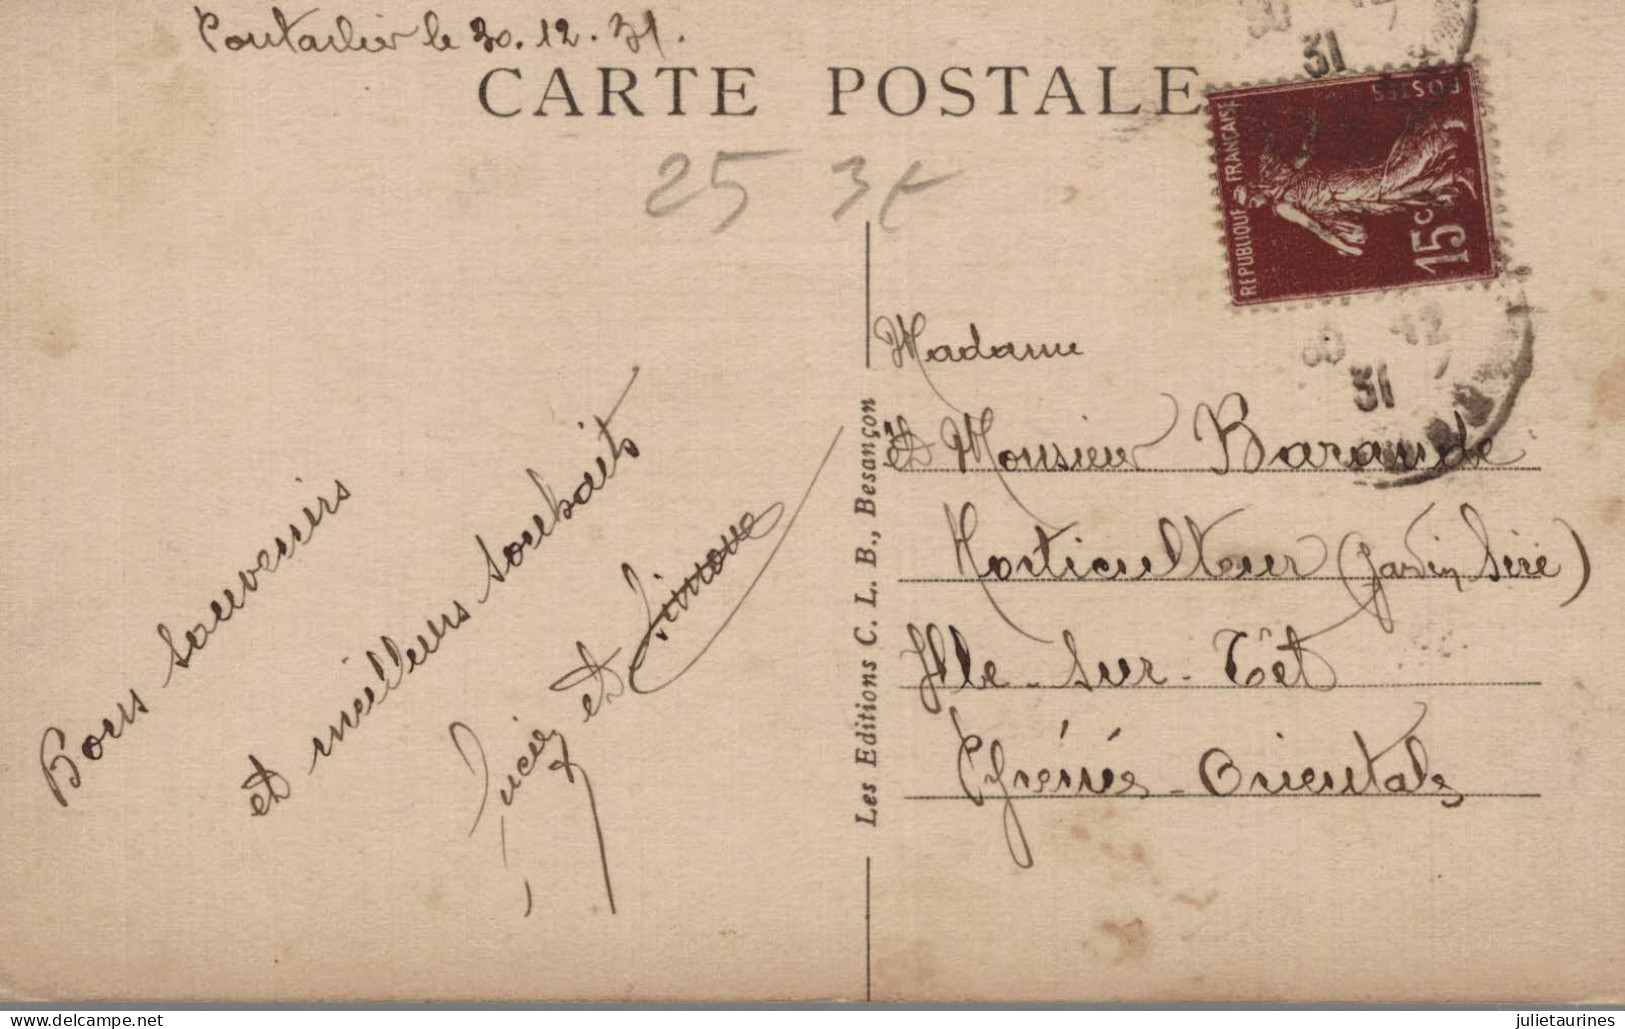 Pontarlier le 30.12.31.
CARTE POSTALE
25 3€
30 12
31
POSTES
REPUBLIQUE FRANÇAISE
15c
30 12
31
Bons souvenirs
et meilleurs souhaits
Lucien et Simone
Les Editions C. L. B., Besançon
Madame
et Monsieur Barande
Horticulteur (Jardin Siré)
Ille-sur-Têt
Pyrénées-Orientales
www.delcampe.net
julietaurines